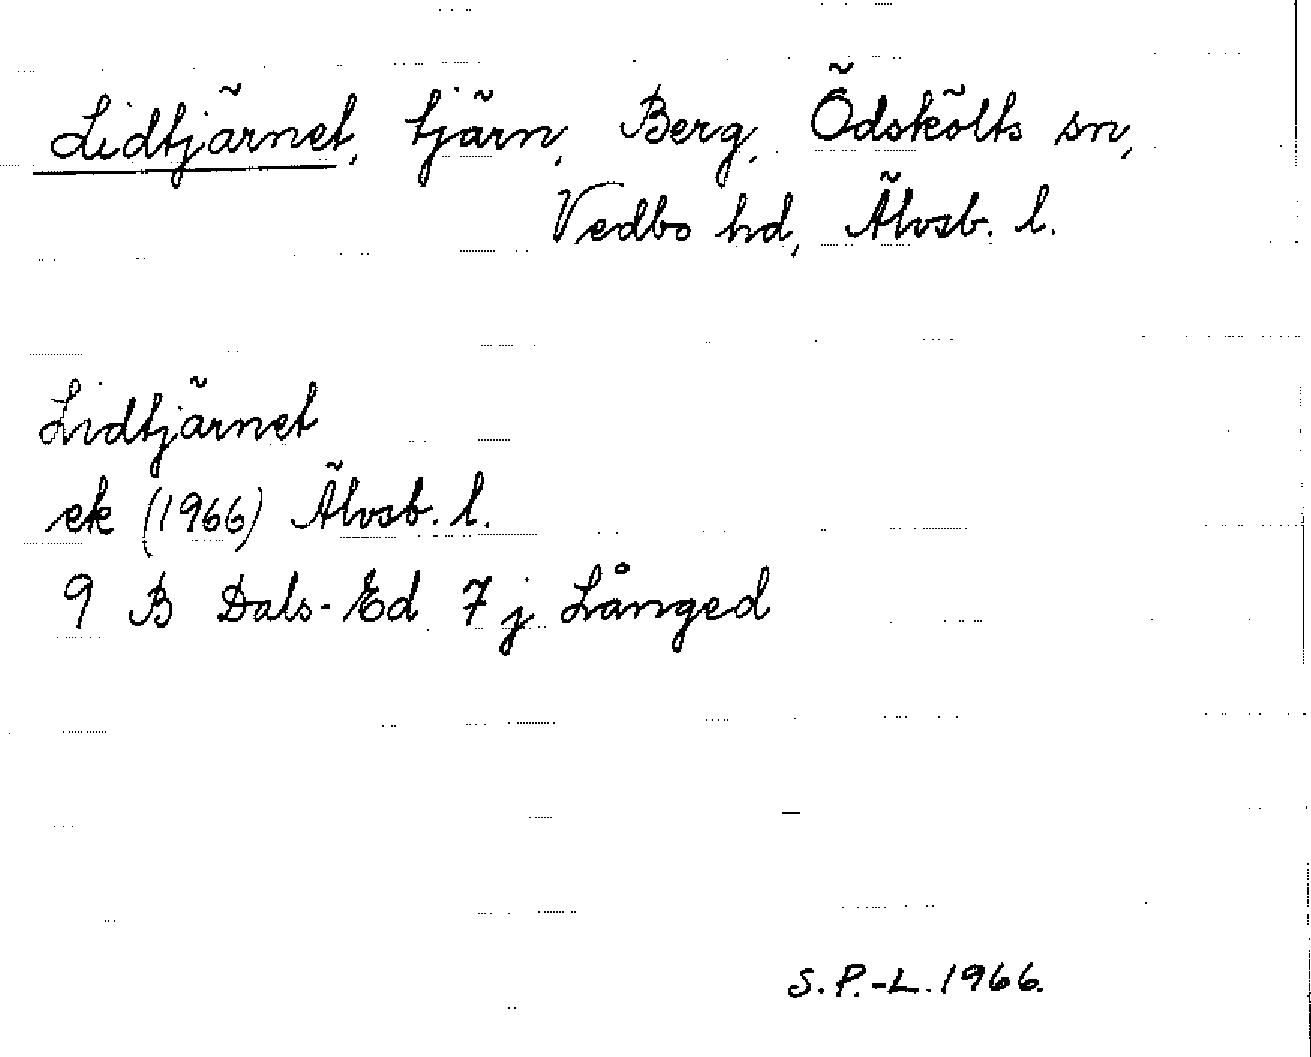 Lidtjärnet, tjärn, Berg, Ödskölts sn,
Vedbo hd, Älvsb. l.
Lidtjärnet
ek (1966) Älvsb. l.
9 B Dals-Ed 7 j Långed
S.P.-L. 1966.